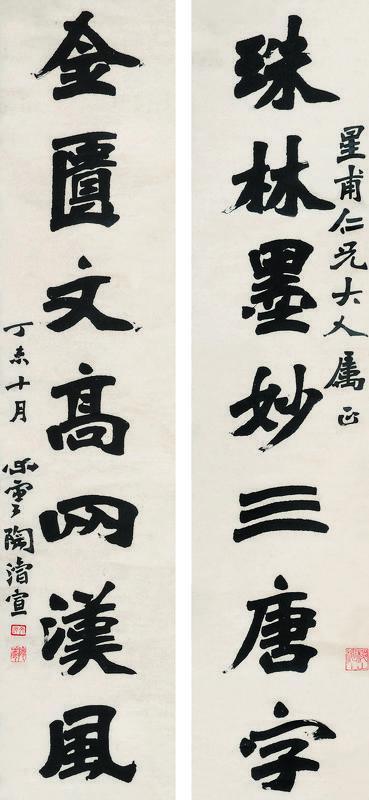 星甫仁兄大人属正
珠林墨妙三唐字
金匱文高兩漢風
丁未十月心雲陶濬宣